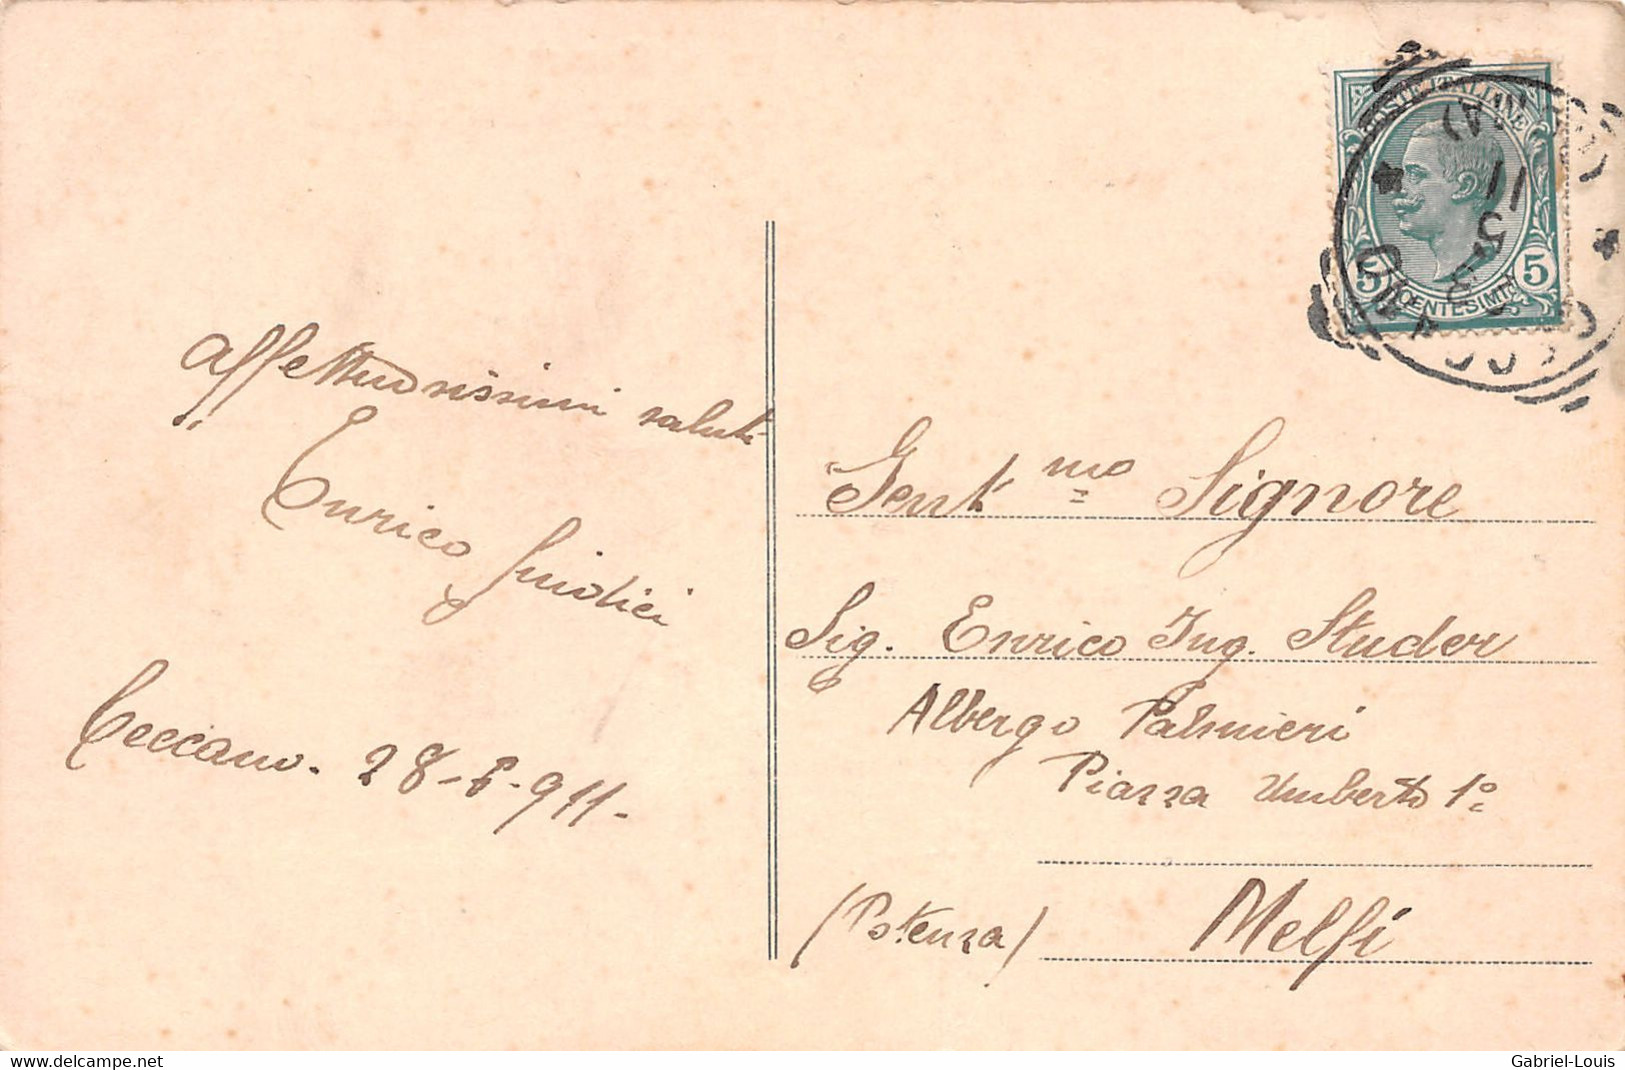 Affettuosissimi saluti
Enrico Giudici
Ceccano. 28-5-911-
POSTE ITALIANE
5 CENTESIMI 5
Gent.mo Signore
Sig. Enrico Ing. Studer
Albergo Palmieri
Piazza Umberto 1º
(Potenza) Melfi
delcampe.net
Gabriel-Louis